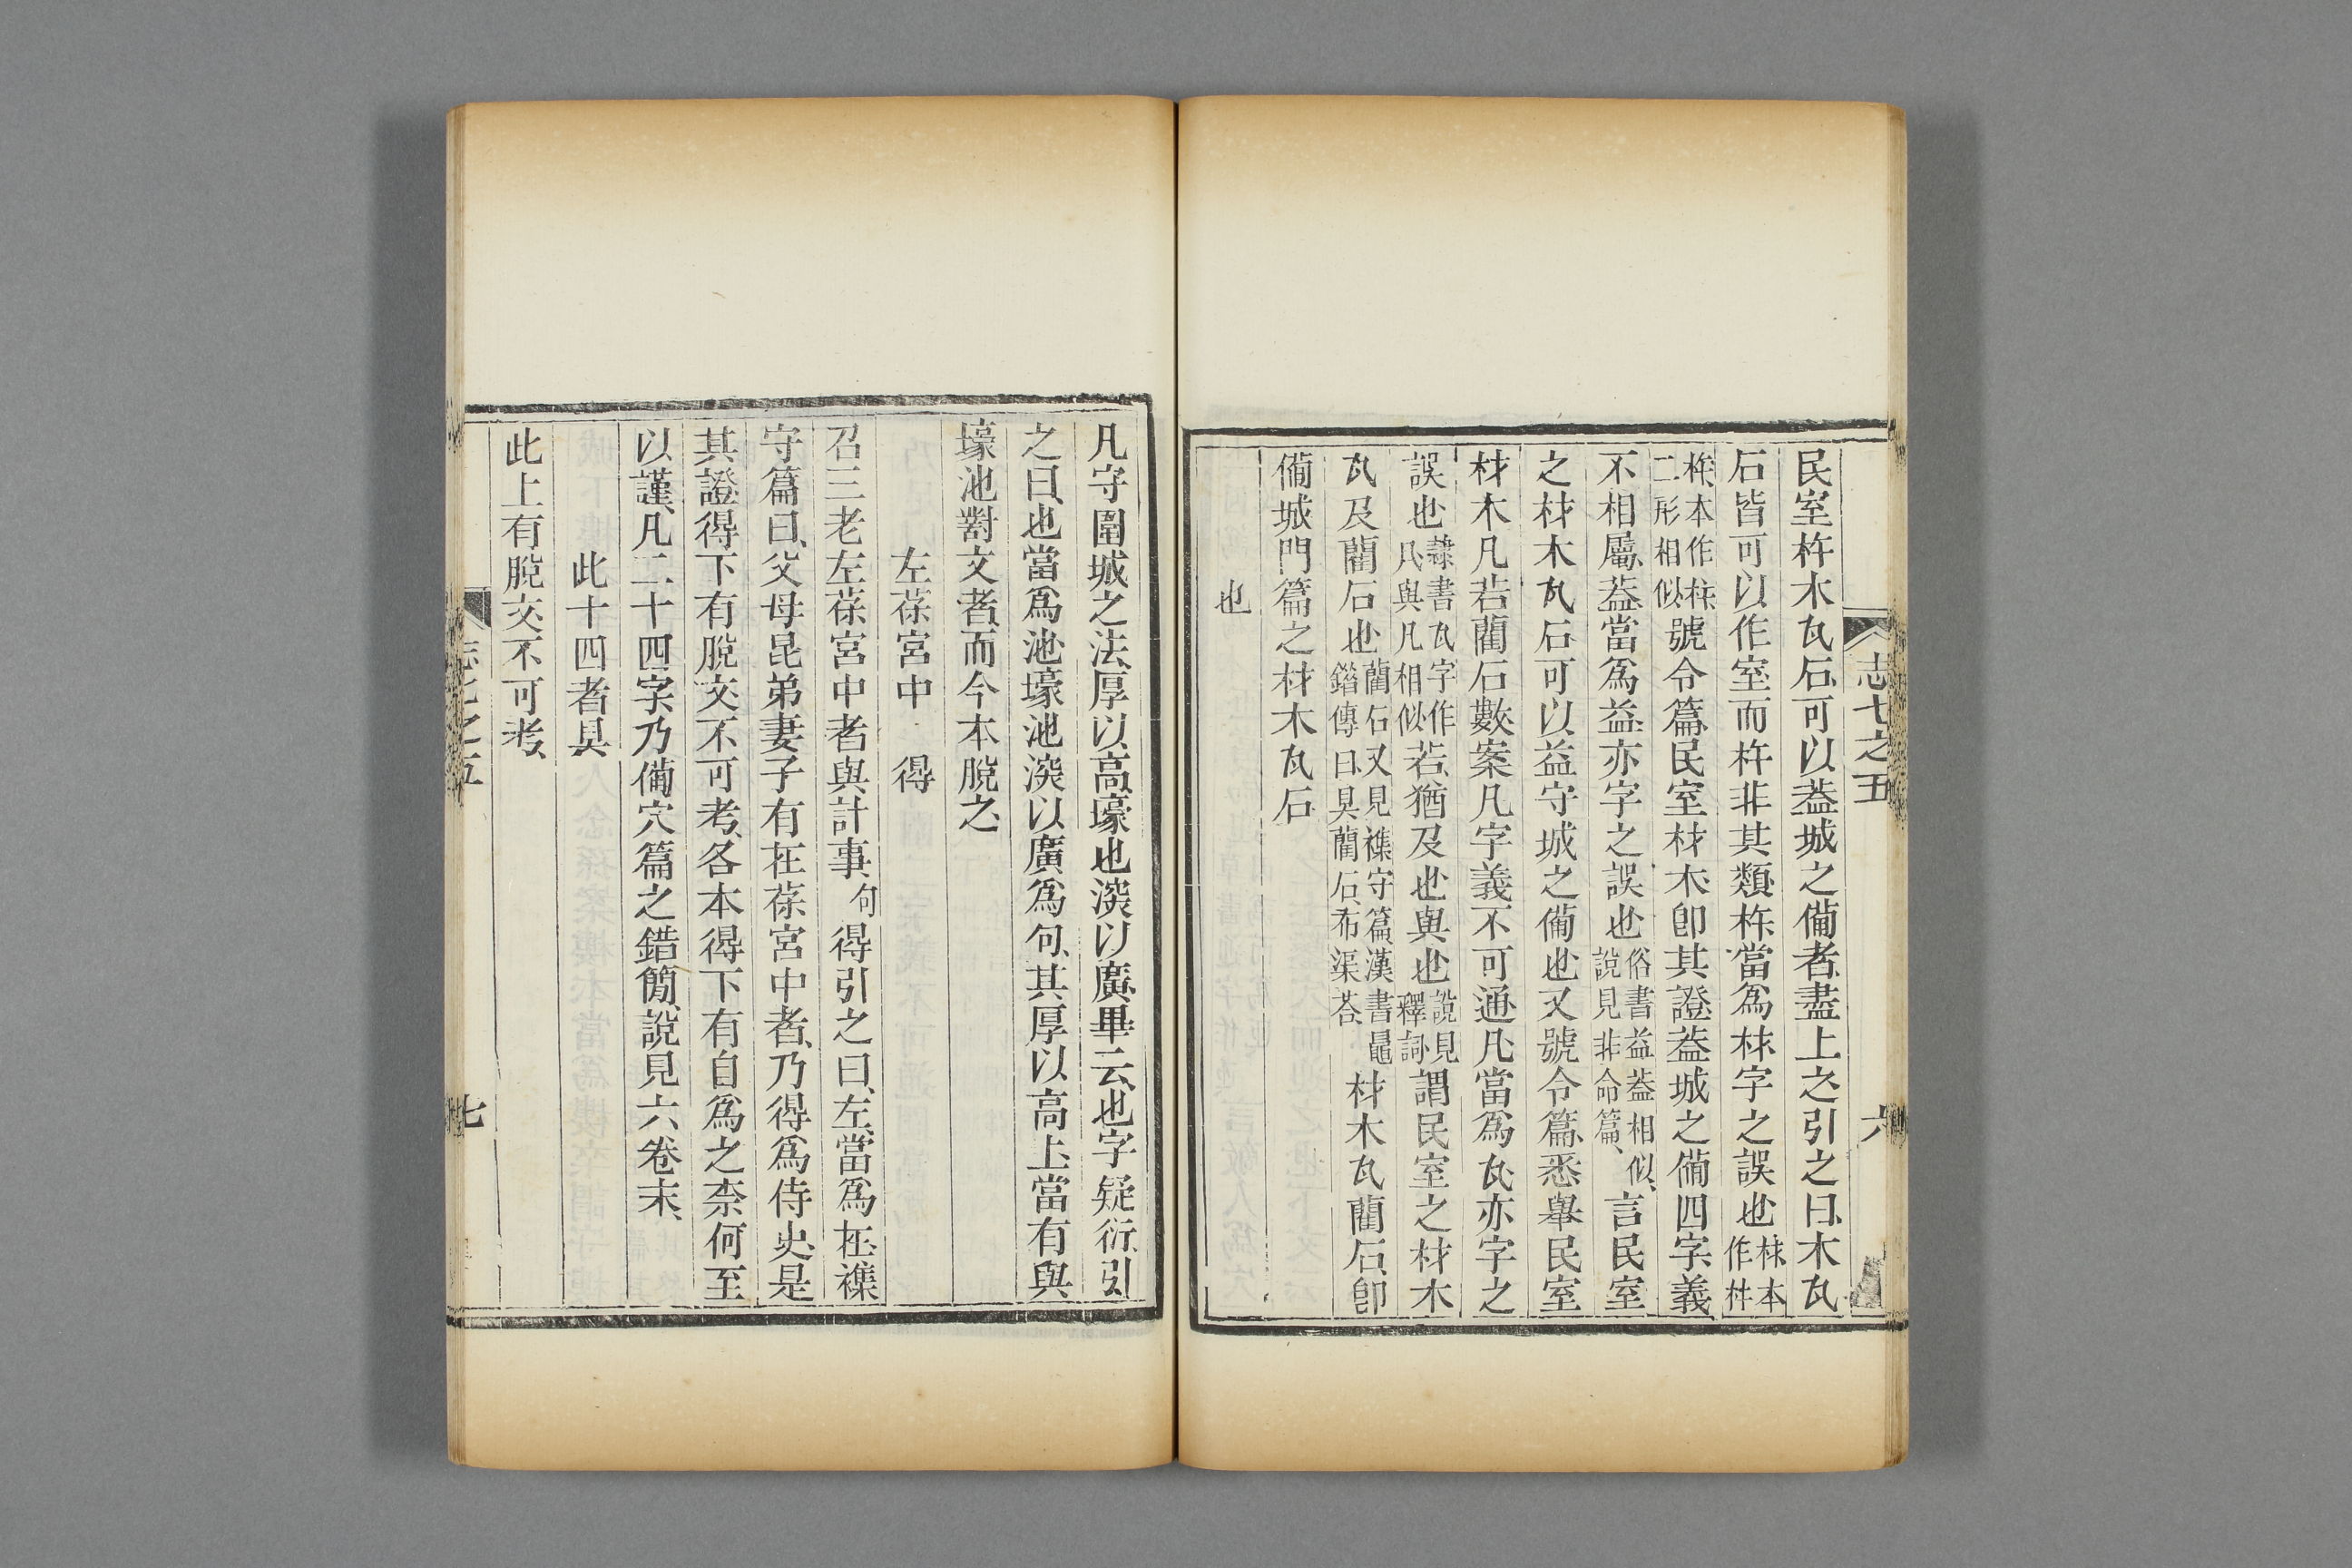 志七之五
六
民室杵木瓦石可以葢城之備者盡上之引之曰木瓦
石皆可以作室而杵非其類杵當爲材字之誤也
材本
作杵
杵本作
二形相似
號令篇民室材木卽其證葢城之備四字義
不相屬葢當爲益亦字之誤也
俗書益葢相似
說見非命篇
言民室
之材木瓦石可以益守城之備也又號令篇悉舉民室
材木凡若藺石數案凡字義不可通凡當爲瓦亦字之
誤也
隷書瓦字作
凡與凡相似
若猶及也與也
說見
釋詞
謂民室之材木
瓦及藺石也
藺石又見襍守篇漢書鼂
錯傳曰具藺石布渠荅
材木瓦藺石卽
備城門篇之材木瓦石
也
凡守圍城之法厚以高壕也深以廣畢云也字疑衍引
之曰也當爲池壕池深以廣爲句其厚以高上當有與
壕池對文者而今本脫之
左葆宮中 得
召三老左葆宮中者與計事
句
得引之曰左當爲在襍
守篇曰父母昆弟妻子有在葆宮中者乃得爲侍吏是
其證得下有脫文不可考各本得下有自爲之柰何至
以謹凡二十四字乃備穴篇之錯簡說見六卷末
此十四者具
此上有脫文不可考
志七之五
七